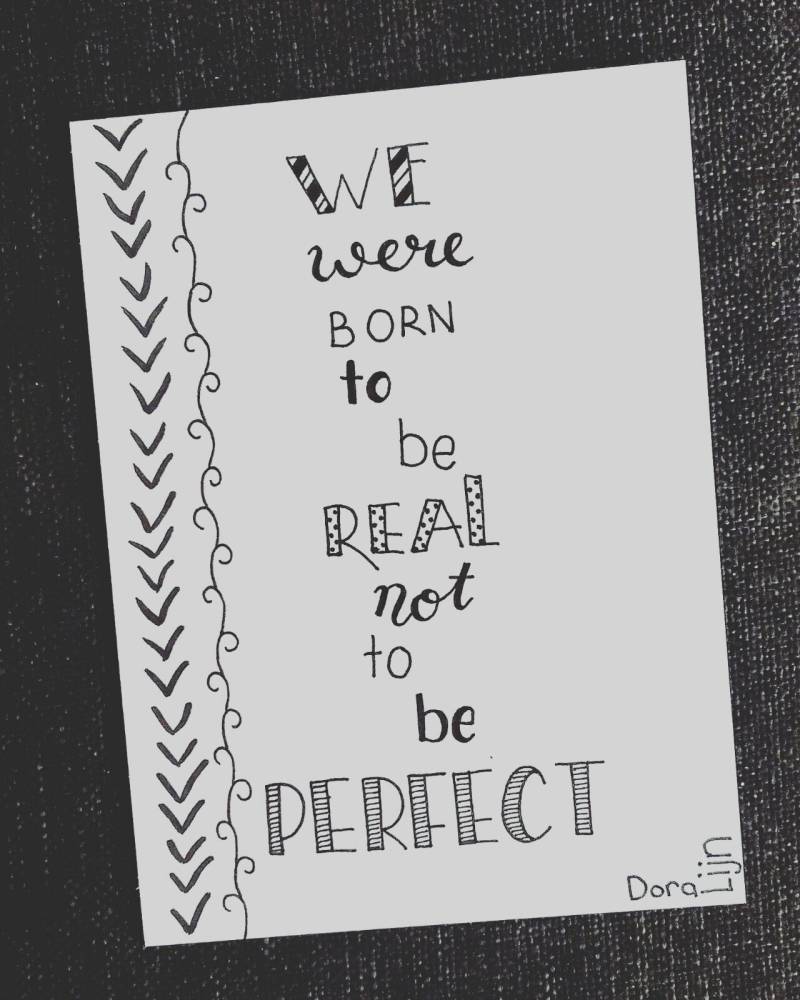 WE
were
BORN
to
be
REAL
not
to
be
PERFECT
Dora Lijn